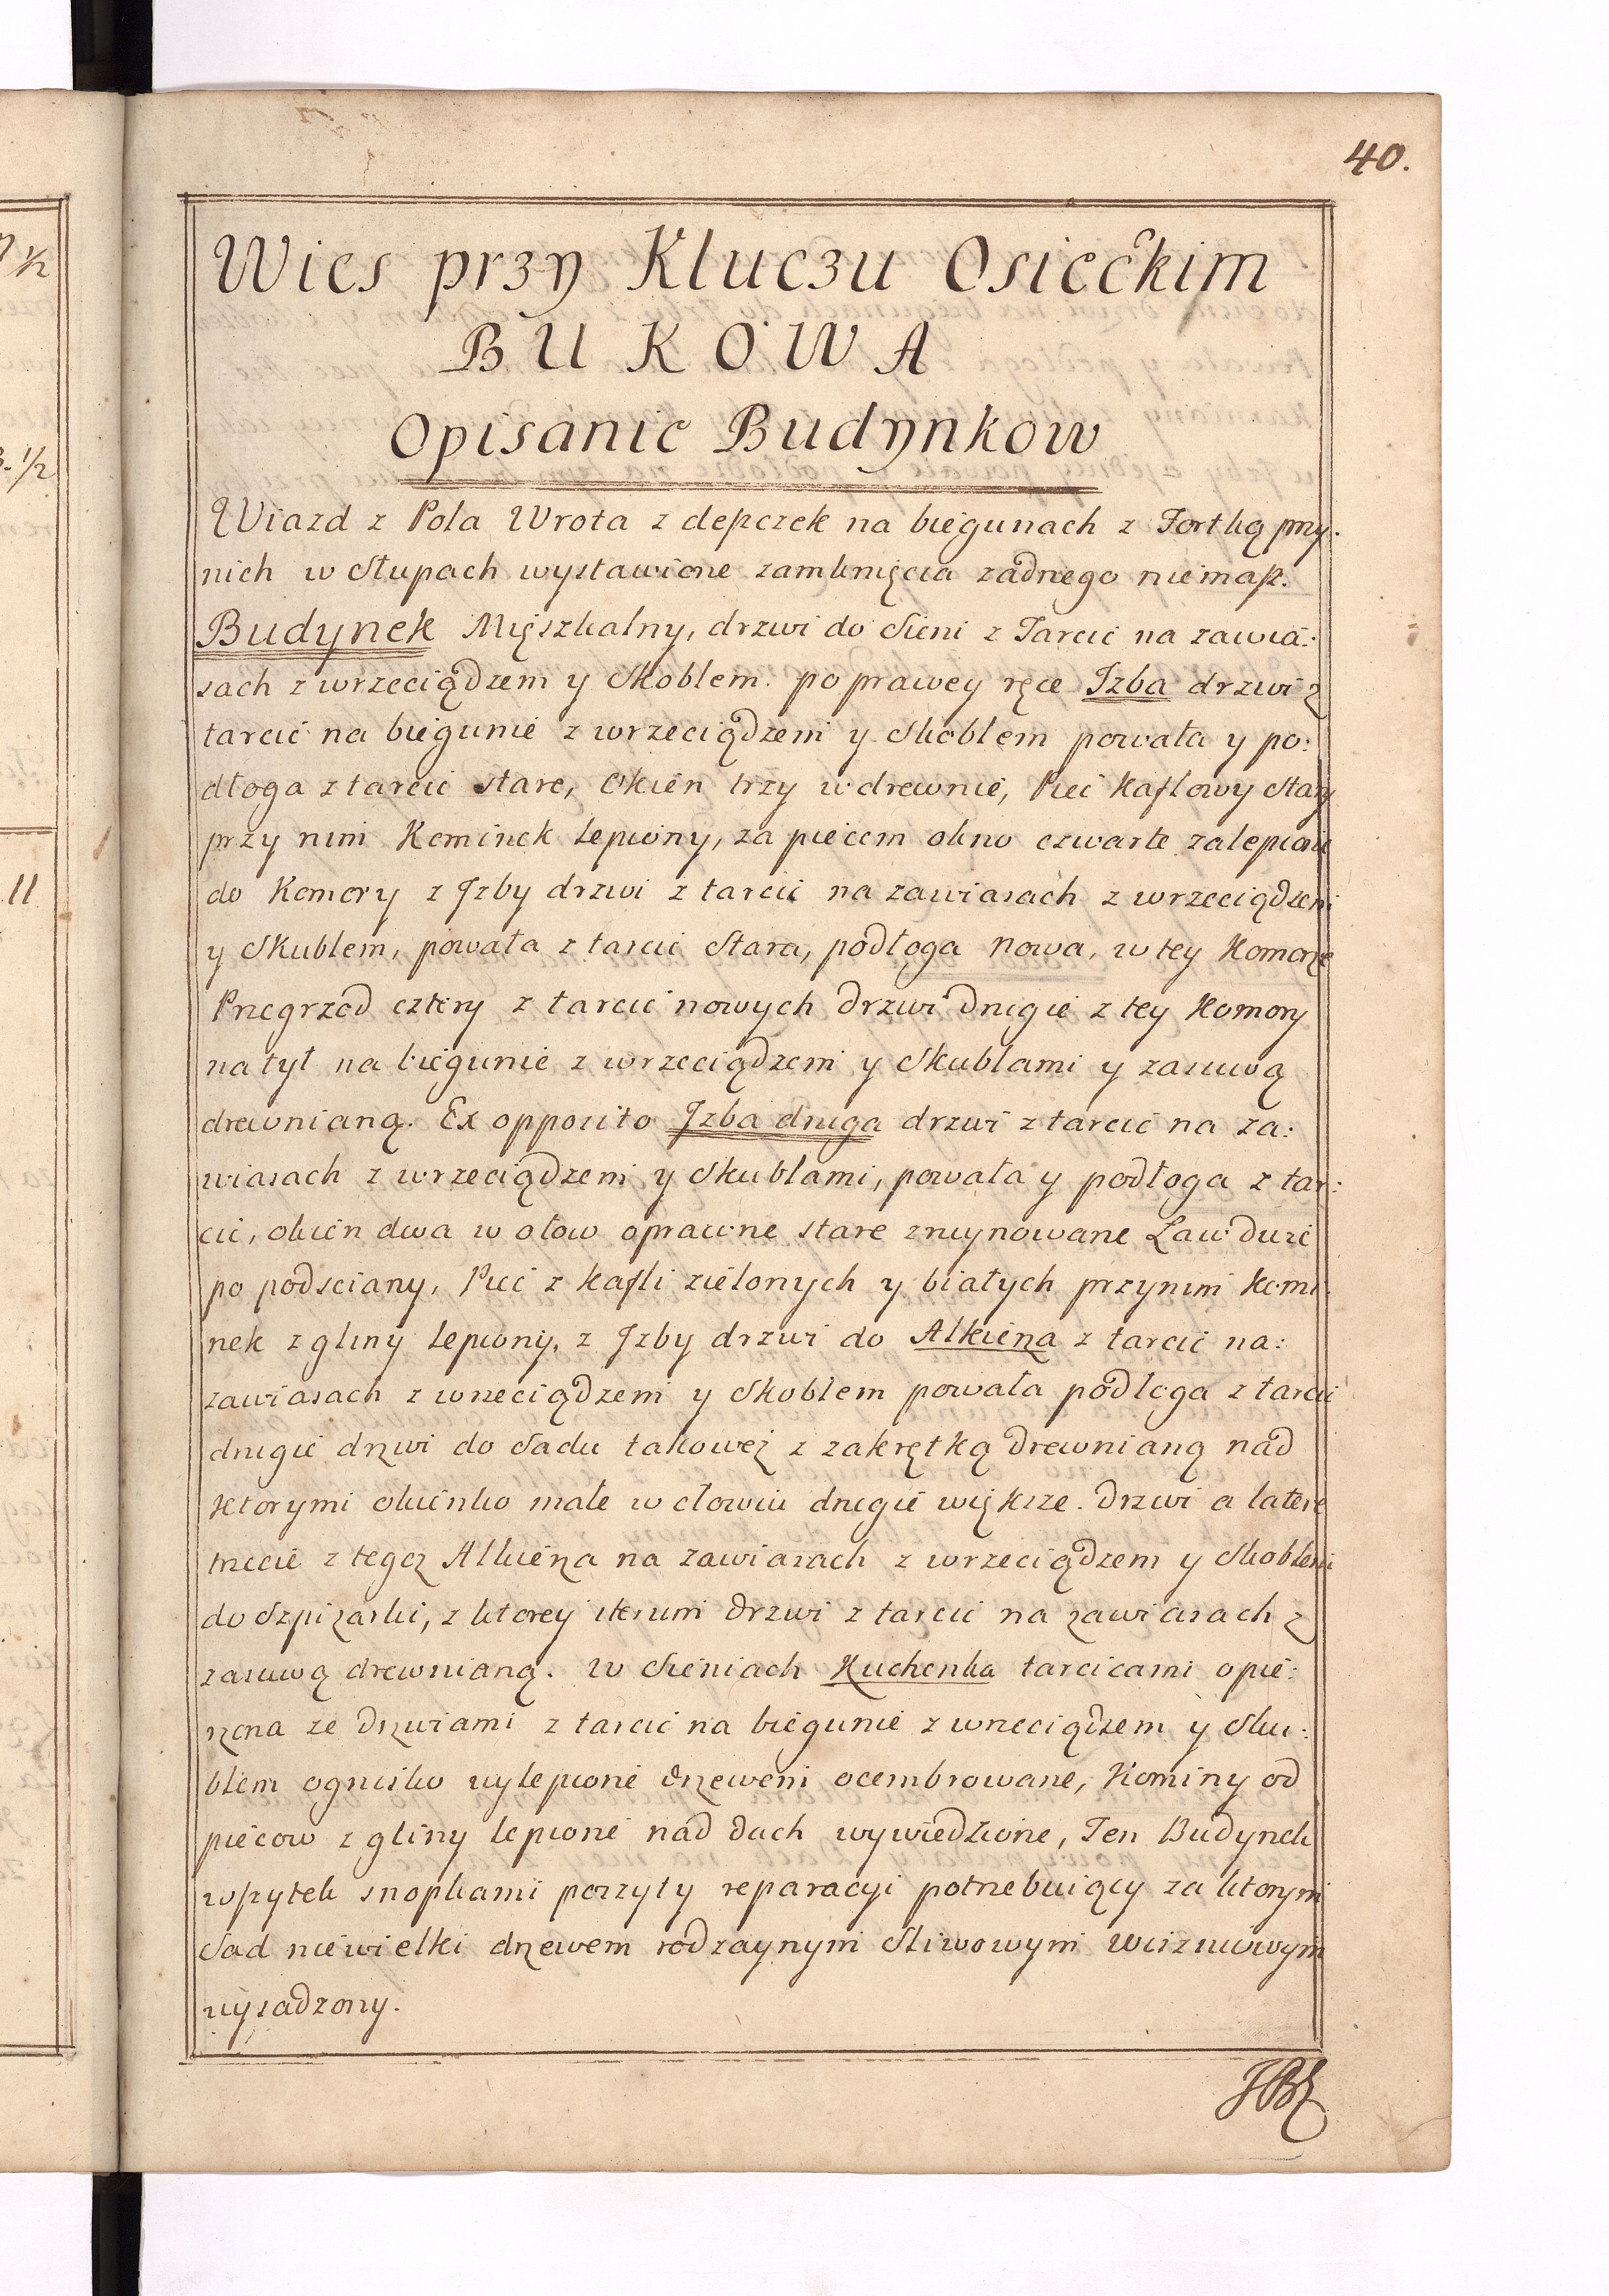 40.
Wies przy Kluczu Osieckim
BUKOWA
Opisanie Budynkow
Wiazd z Pola Wrota z depczek na biegunach z Fortką przy
nich w słupach wystawione zamknięcia zadnego niemasz.
Budynek Mięszkalny, drzwi do Sieni z Tarcic na zawia:
sach z wrzeciądzem y Skoblem. po prawey ręce Jzba drzwi z
tarcic na biegunie z wrzeciądzem y Skoblem powała y po:
dłoga z tarcic stare, Okien trzy w drewnie, Piec kaflowy Stary
przy nim Kominek lepiony, za piecem okno czwarte zalepione
do Komory z Jzby drzwi z tarcic na zawiasach z wrzeciądzem
y Skublem, powała z tarcic Stara, podłoga nowa, w tey Komorze
Przegrzod cztery z tarcic nowych drzwi drugie z tey Komory
na tył na biegunie z wrzeciądzem y Skublami y zasuwą
drewnianą. Ex opposito Jzba druga drzwi z tarcic na za:
wiasach z wrzeciądzem y Skublami, powała y podłoga z tar:
cic, okien dwa w ołow oprawne stare zruynowane Ław duże
po podsciany, Piec z kafli zielonych y białych przy nim komi
nek z gliny lepiony, z Jzby drzwi do Alkierza z tarcic na:
zawiasach z wrzeciądzem y Skoblem powała podłoga z tarcic
drugie drzwi do Sadu takowez z zakrętką drewnianą nad
ktorymi okienko małe w ołowiu drugie większe. drzwi a latere
trzecie z tegoz Alkierza na zawiasach z wrzeciądzem y Skoblem
do Szpizarki, z ktorey iterum drzwi z tarcic na zawiasach z
zasuwą drewnianą. w Sieniach Kuchenka tarcicami opie:
rzona ze drzwiami z tarcic na biegunie z wrzeciądzem y Sku:
blem ognisko wylepione drzewem ocembrowane, Kominy od
piecow z gliny lepione nad dach wywiedzione, Ten Budynek
wszytek snopkami poszyty reparacyi potrzebuiący za ktorym
Sad niewielki drzewem rodzaynym Sliwowym wisznowym
wysadzony.